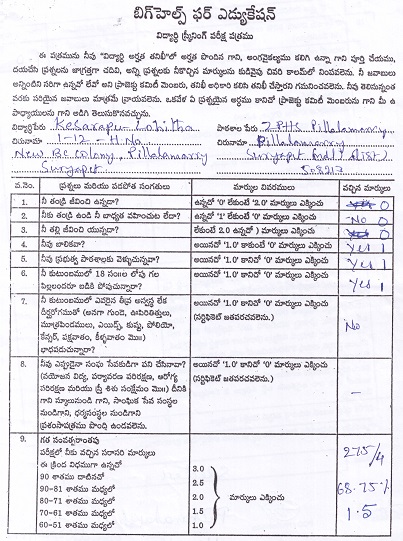 బిగ్‌హెల్ప్ ఫర్ ఎడ్యుకేషన్
విద్యార్థి స్క్రీనింగ్ పరీక్ష పత్రము
ఈ పత్రమును నీవు "విద్యార్థి అర్హత తనిఖీ"లో అర్హత పొందిన గాని, అంగవైకల్యము కలిగి ఉన్నా గాని పూర్తి చేయుము,
దయచేసి ప్రశ్నలను జాగ్రత్తగా చదివి, అన్ని ప్రశ్నలకు నీకొచ్చిన మార్కులను కుడివైపు చివరి కాలమ్‌లో నింపవలెను. నీ జవాబులు
అన్నిందిని సరిగా ఉన్నవో లేవో అని ప్రాజెక్టు కమిటీ మెంబరు, తనిఖీ అధికారి కలిసి తనిఖీ చేస్తారని గమనించవలెను. నీవు తెలిసినంత
వరకు సరియైన జవాబులు మాత్రమే వ్రాయవలెను. ఒకవేళ ఏ ప్రశ్నయైన అర్థము కానిచో ప్రాజెక్టు కమిటీ మెంబరును గాని మీ ఉ
పాధ్యాయులను గాని అడిగి తెలుసుకొనవచ్చును.
విద్యార్థిపేరు Kesarapu Lohitha పాఠశాల పేరు ZPHS Pillalamarry
చిరునామా 1-12 H.No చిరునామా Pillalamarry
New Bc colony, Pillalamarry Suryapet Mdl (Dist)
Suryapet 508213
వ.నెం. ప్రశ్నలు మరియు పదపోత సంగతులు మార్కుల వివరములు వచ్చిన మార్కులు
1. నీ తండ్రి జీవించి ఉన్నడా? ఉన్నచో '0' లేకుంటే '2.0' మార్కులు ఎక్కించు 0
2. నీకు తండ్రి ఉండి నీ బాధ్యత వహించుట లేదా? ఉన్నచో '1' లేకుంటే '0' మార్కులు ఎక్కించు No 0
3. నీ తల్లి జీవించి యున్నదా? లేకుంటే 2.0 ఉన్నచో ) మార్కులు ఎక్కించు 0
4. నీవు బాలికవా? అయినచో '1.0' కాకుంటే '0' మార్కులు ఎక్కించు Yes 1
5. నీవు ప్రభుత్వ పాఠశాలకు వెళ్ళుచున్నావా? అయినచో '1.0' కానిచో '0' మార్కులు ఎక్కించు Yes 1
6. నీ కుటుంబములో 18 సం॥ల లోపు గల అయినచో '1.0' కానిచో '0' మార్కులు ఎక్కించు
పిల్లలందరూ బడికి పోవుచున్నారా? Yes 1
7. నీ కుటుంబములో ఎవరైన తీవ్ర అస్వస్థ లేక అయినచో '1.0' కానిచో '0' మార్కులు ఎక్కించు
దీర్ఘరోగముతో (అనగా గుండె, ఊపిరితిత్తులు, (సర్టిఫికెట్ జతపరచవలెను.)
మూత్రపిండములు, ఎయిడ్స్, కుష్ఠు, పోలియో, No
కేన్సర్, పక్షవాతం, కీళ్ళవాతం మొ॥)
బాధపడుచున్నారా?
8. నీవు ఎప్పుడైనా సంఘ సేవకుడిగా పని చేసినావా? అయినచో '1.0' కానిచో '0' మార్కులు ఎక్కించు
(వయోజన విద్య, పర్యావరణ పరిరక్షణ, ఆరోగ్య (సర్టిఫికెట్ జతపరచవలెను.)
సరిరక్షణ మరియు స్త్రీ శిశు సంక్షేమం మొ॥) దీనికి
గాని స్కూలునుండి గాని, సాంఘిక సేవ సంస్థల
నుండిగాని, ధర్మసంస్థల నుండిగాని
ప్రశంసాపత్రము పొంది ఉండవలెను.
9. గత సంవత్సరాంతపు
పరీక్షలో నీకు వచ్చిన సరాసరి మార్కులు 275/4
ఈ క్రింద విధముగా ఉన్నచో
90 శాతము దాటినచో 3.0
90-81 శాతము మధ్యలో 2.5 68.75%
80-71 శాతము మధ్యలో 2.0 మార్కులు ఎక్కించు
70-61 శాతము మధ్యలో 1.5 1.5
60-51 శాతము మధ్యలో 1.0